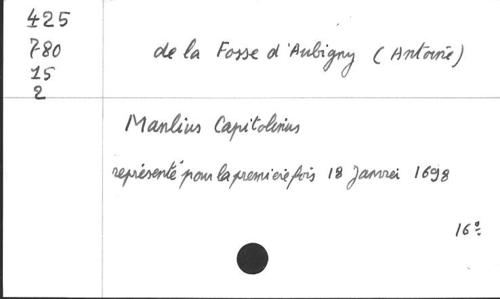 425
780
15
2
de la Fosse d'Aubigny (Antoine)
Manlius Capitolinus
représenté pour la premiere fois 18 Janvier 1698
16º